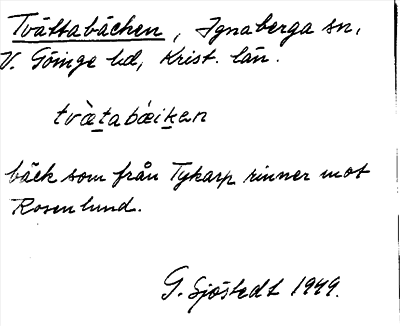 Tvättabäcken, Ignaberga sn,
V. Göinge hd, Krist. län.
tvæ̀tabæ̀iken
bäck som från Tykarp rinner mot
Rosenlund.
G. Sjöstedt 1949.